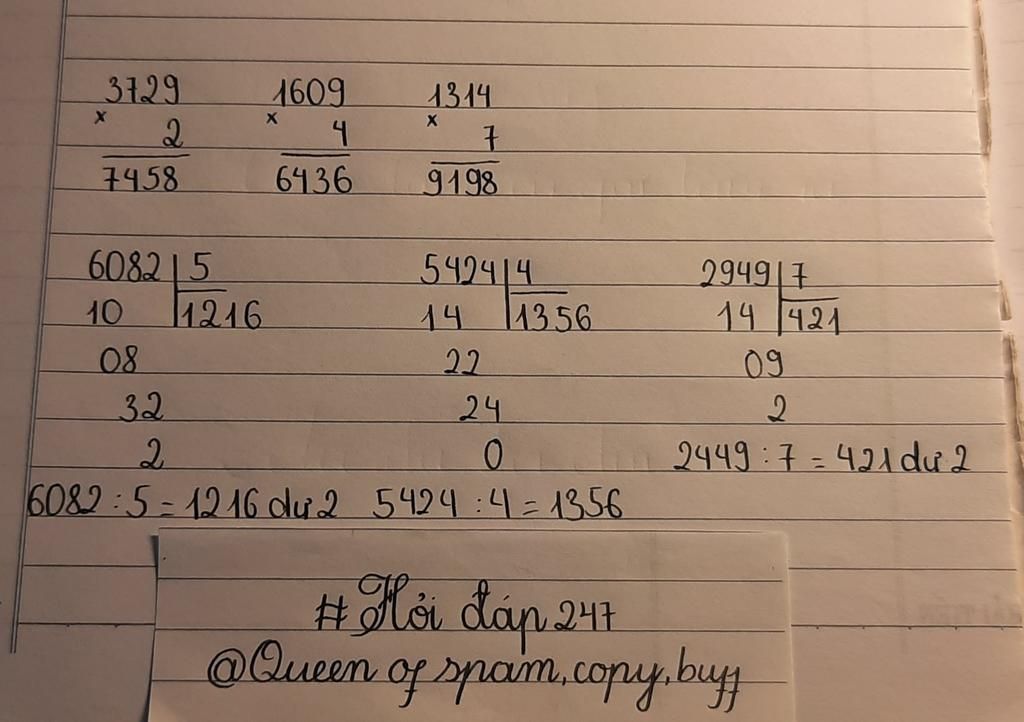 3729 1609 1314
x 2 x 4 x 7
7458 6436 9198
6082 5 5424 4 2949 7
10 1216 14 1356 14 421
08 22 09
32 24 2
2 0 2449 : 7 = 421 dư 2
6082 : 5 = 1216 dư 2 5424 : 4 = 1356
# Hỏi đáp 247
@Queen of spam, copy, buff